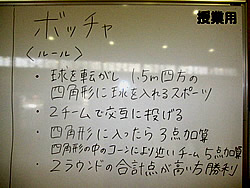 授業用
ボッチャ
〈ルール〉
・球を転がし 1.5m四方の
四角形に球を入れるスポーツ
・2チームで交互に投げる
・四角形に入ったら3点加算
四角形の中のコーンにより近いチーム5点加算
・2ラウンドの合計点が高い方勝利